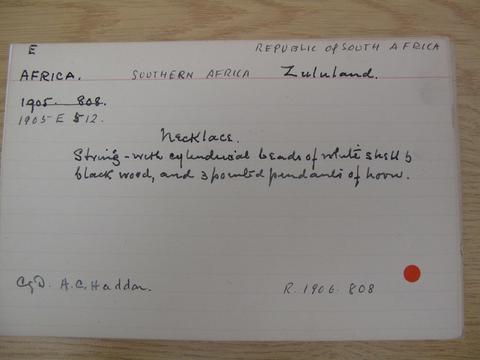 E REPUBLIC OF SOUTH AFRICA
AFRICA. SOUTHERN AFRICA Zululand.
1905. 808.
1905 E 512.
Necklace.
String - with cylindrical beads of white shell &
black wood, and 3 pointed pendants of horn.
CyD. A.C. Haddon. R. 1906. 808